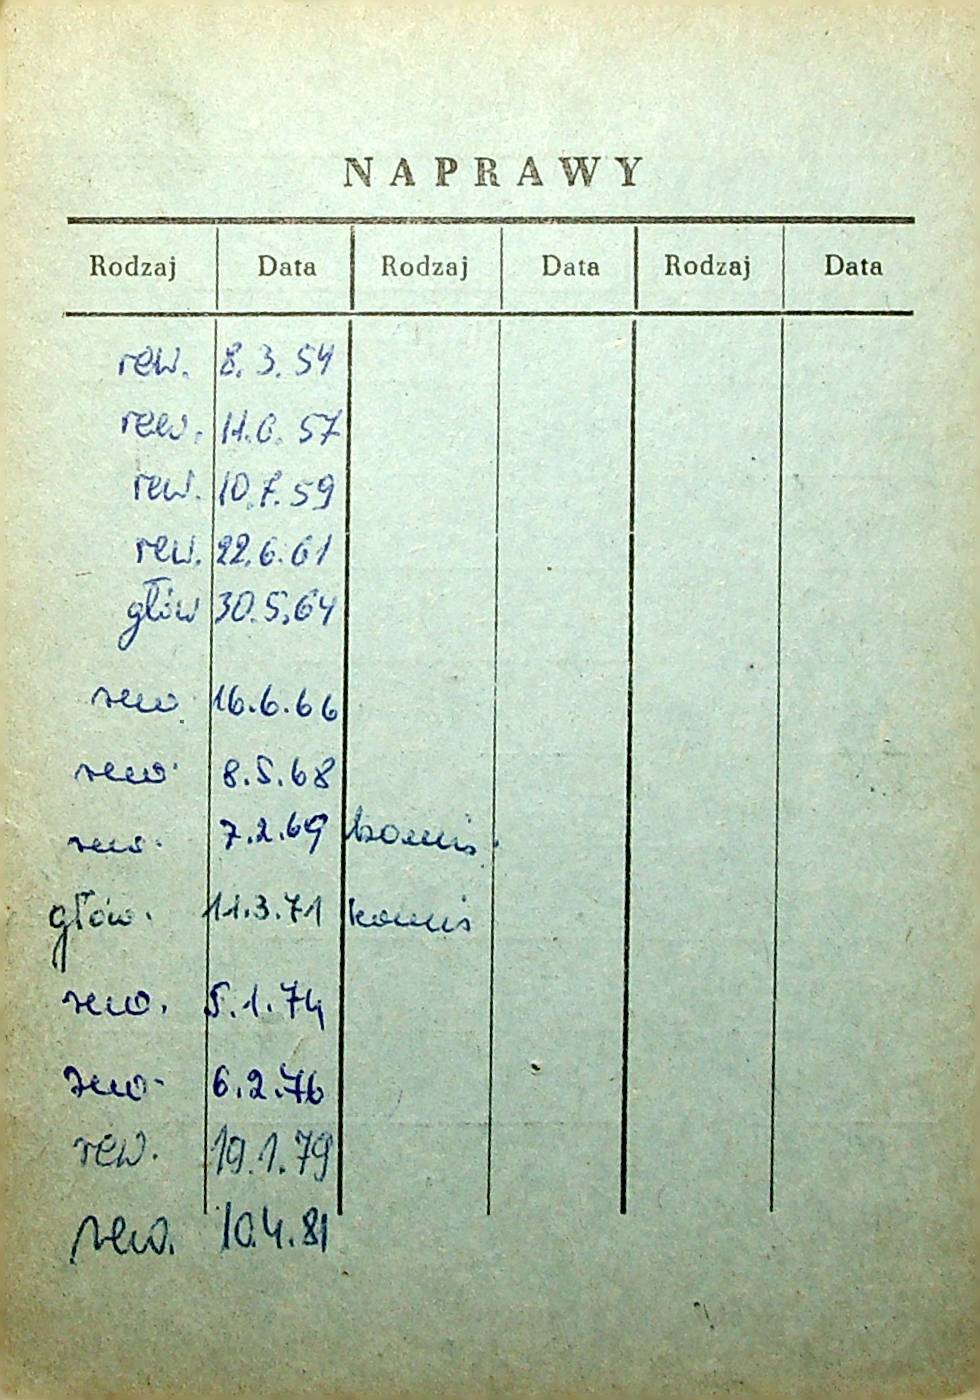 NAPRAWY
Rodzaj Data Rodzaj Data Rodzaj Data
rew. 8.3.54
rew. 11.6.57
rew. 10.7.59
rew. 22.6.61
głów 30.5.64
rew. 16.6.66
rew. 8.5.68
rew. 7.2.69 komis.
głów. 11.3.71 komis
rew. 5.1.74
rew. 6.2.76
rew. 19.1.79
rew. 10.4.81